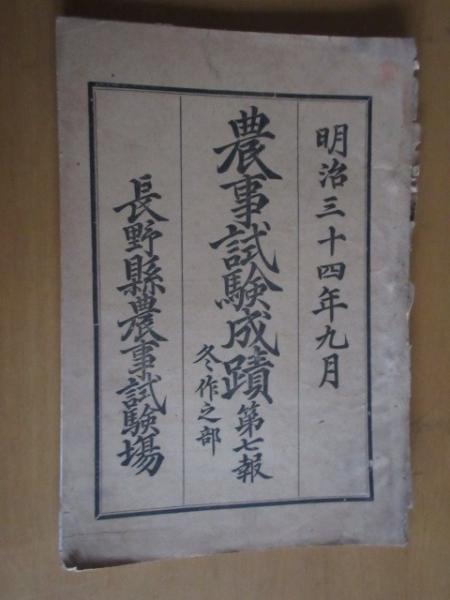 明治三十四年九月
農事試験成蹟 第七報
冬作之部
長野縣農事試験場